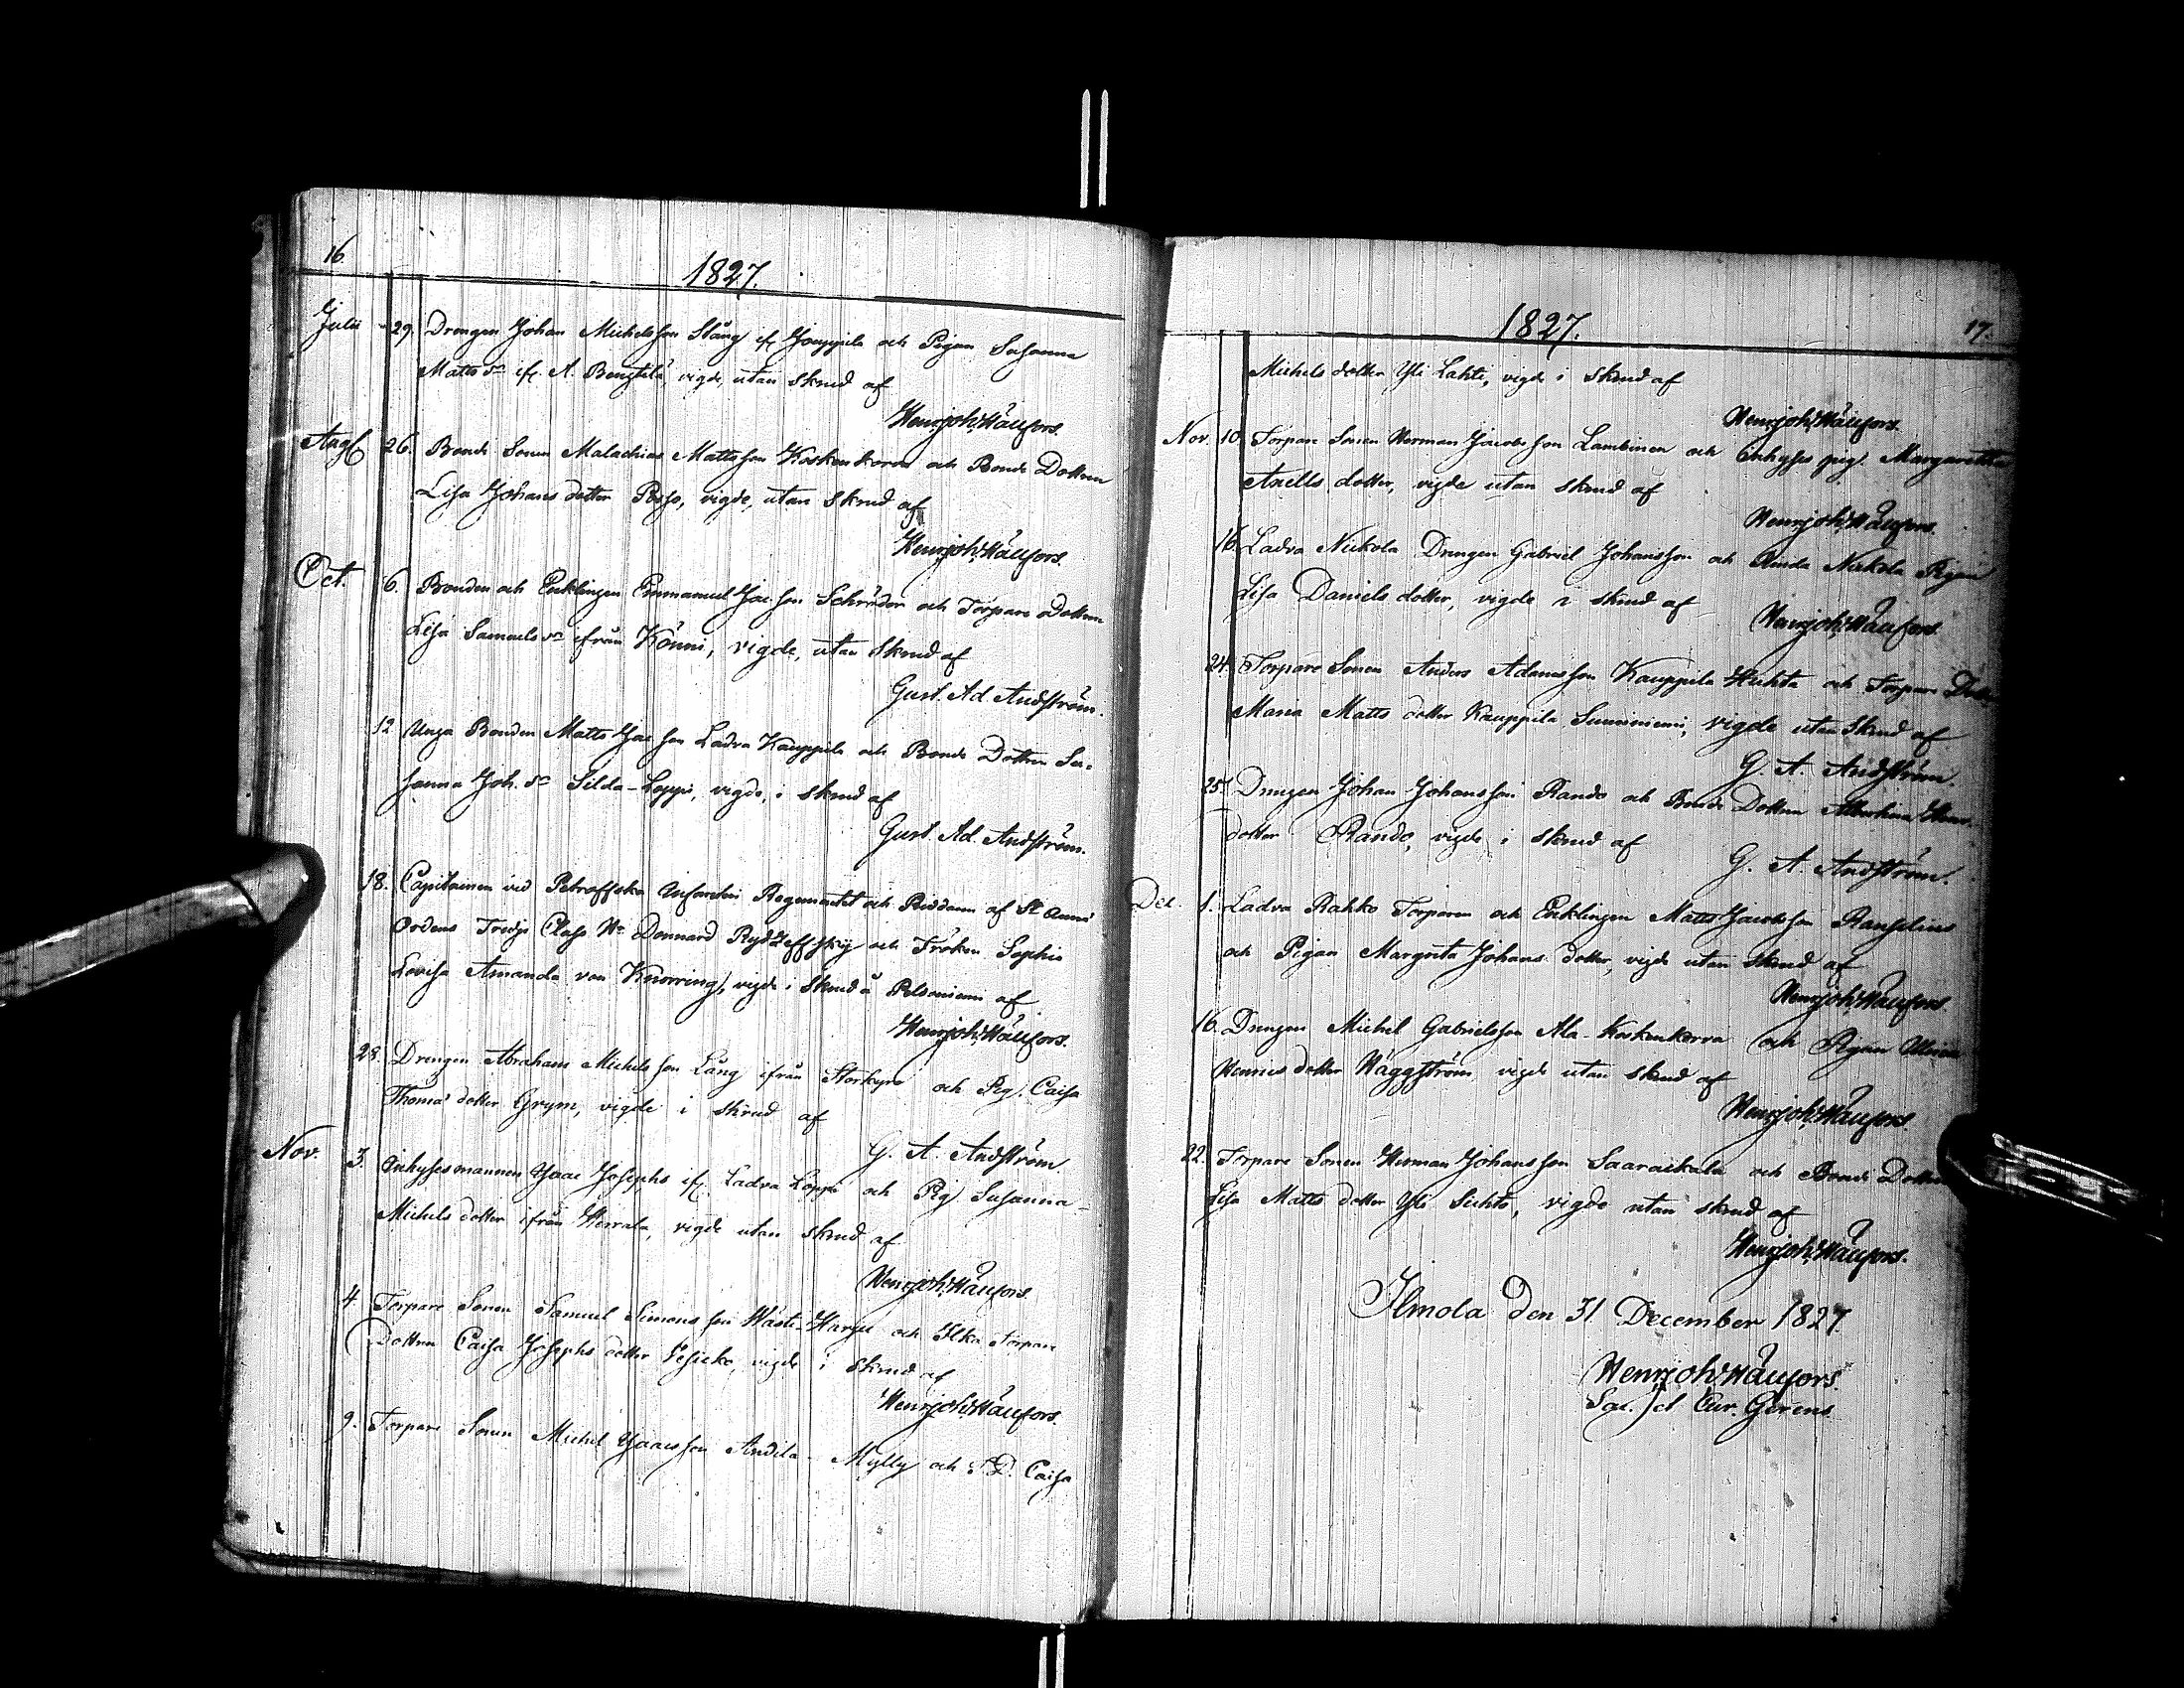 16.
1827.
Julii 29. Drengen Johan Michelsson Stång if. Jouppila och Pigan Susanna
Matts dr if. A. Bengtilä, vigde, utan skrud af
Henr. Joh. Wäufors.
Aug. 26. Bonde Sonen Malachias Mattsson Koskenkorva och Bonde Dottren
Lisa Johans dotter Passo, vigde, utan skrud af
Henr. Joh. Wäufors.
Oct. 6. Bonden och Encklingen Emmanuel Jac. son Schröder och Torpare Dottren
Lisa Samuels dr ifrån Könni, vigde, utan skrud af
Gust. Ad. Andström.
12 Unga Bonden Matts Jac. son Ladva Kauppila och Bonde Dottren Su=
sanna Joh. dr Silda-Loppi, vigde, i skrud af
Gust. Ad. Andström.
18. Capitainen vid Petroffska Infanterie Regementet och Riddaren af St Annæ
Ordens Tredje Class Wr Donnard och Fröken Sophia
Lovisa Amanda von Knorring, vigde i skrud å Peltoniemi af
Henr. Joh. Wäufors.
28. Drengen Abraham Michelsson Lång ifrån Storkyro och Pig. Caisa
Thomæ dotter Grym, vigde i skrud af
G. A. Andström
Nov. 3. Inhysesmannen Isaac Josephs if. Ladva Loppi och Pig. Susanna
Michels dotter ifrån Herrala, vigde utan skrud af
Henr. Joh. Wäufors.
4 Torpare Sonen Samuel Simonsson Wasti-Harju och Ilka Torpare
Dottren Caisa Josephs dotter, vigde i skrud af
Henr. Joh. Wäufors.
9. Torpare Sonen Michel Isaacsson Andila-Mylly och T.D. Caisa
1827.
17.
Michels dotter Yli Lahti, vigde i skrud af
Henr. Joh. Wäufors.
Nov. 10. Torpare Sonen Herman Jacobsson Lambinen och Inhyses pig. Margaretha
Anells dotter, vigde utan skrud af
Henr. Joh. Wäufors.
16. Ladva Nickola Drengen Gabriel Johansson och Renda Nickola Pigan
Lisa Daniels dotter, vigde i skrud af
Henr. Joh. Wäufors.
24. Torpare Sonen Anders Adamsson Kauppila Huhta och Torpare
Maria Matts dotter Kauppila Suuriniemi, vigde utan skrud af
G. A. Andström.
25. Drengen Johan Johansson Rando och Bonde Dottren Albertina Henr.
dotter Rando, vigde i skrud af
G. A. Andström.
Dec. 1. Ladva Rahko Torparen och Encklingen Matts Jacobsson Ranzelius
och Pigan Margreta Johans dotter, vigde utan skrud af
Henr. Joh. Wäufors.
16. Drengen Michel Gabrielsson Ala-Koskenkorva och Pigan Ulrica
Henrics dotter Häggström, vigde utan skrud af
Henr. Joh. Wäufors.
22. Torpare Sonen Herman Johansson Saaraikala och Bonde Dottren
Lisa Matts dotter Yli Sichto, vigde utan skrud af
Henr. Joh. Wäufors.
Ilmola den 31 December 1827.
Henr. Joh. Wäufors.
Sac. et Cur. Gerens